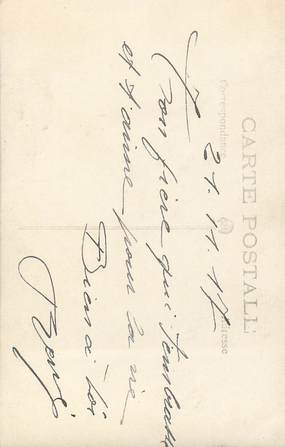 CARTE POSTALE
Correspondance
Adresse
Le 21.11.17
Ton frère qui t'embrasse
et t'aime pour la vie
Bien à toi